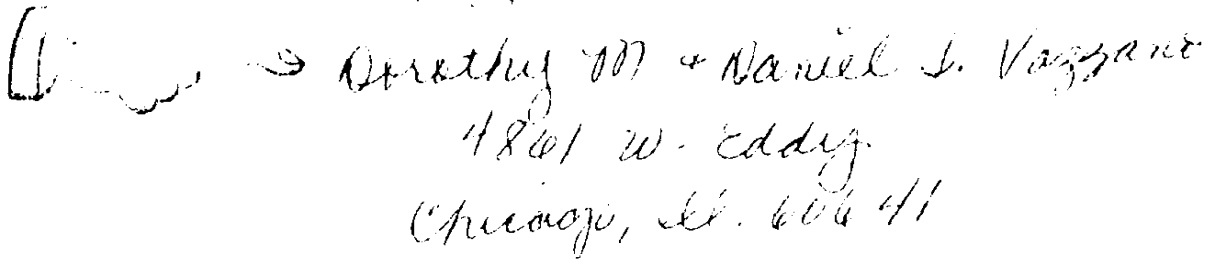 Dorothy M + Daniel S. Vazzano
4861 W. Eddy
Chicago, Il. 60641